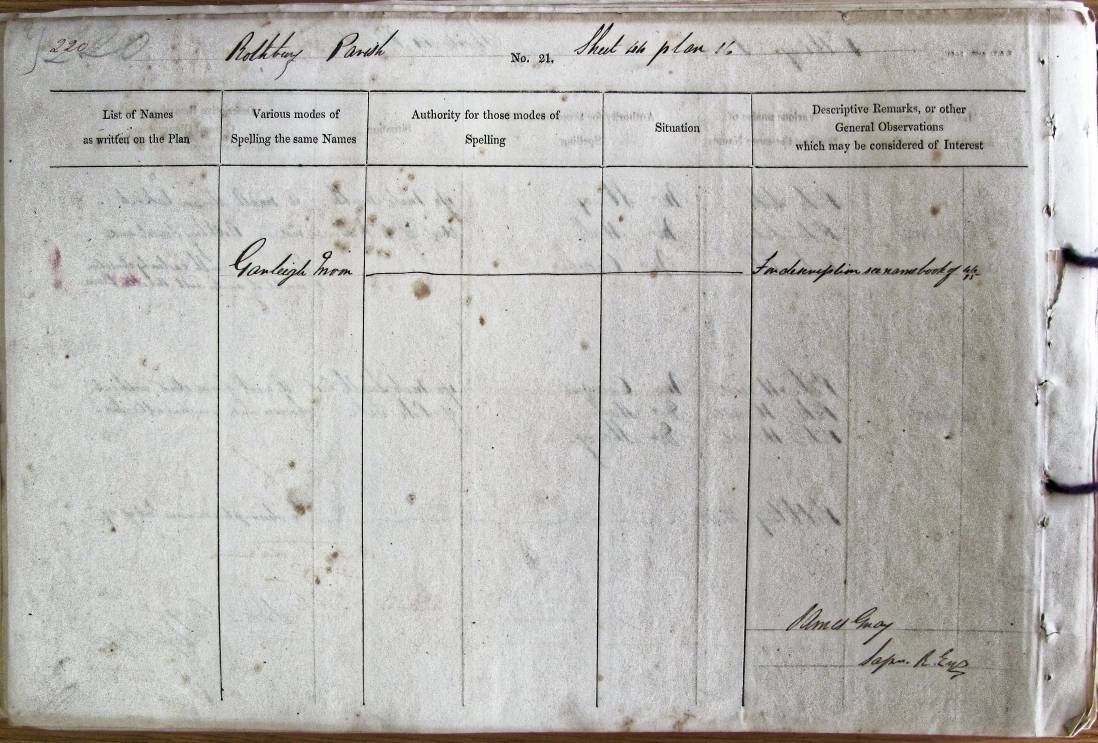 220
Rothbury Parish No. 21. Sheet 44 plan 16
List of Names as written on the Plan
Various modes of Spelling the same Names
Authority for those modes of Spelling
Situation
Descriptive Remarks, or other General Observations which may be considered of Interest
Garleigh Moor For description see name book of 44/15
James Gray
Sapr. R. Eng